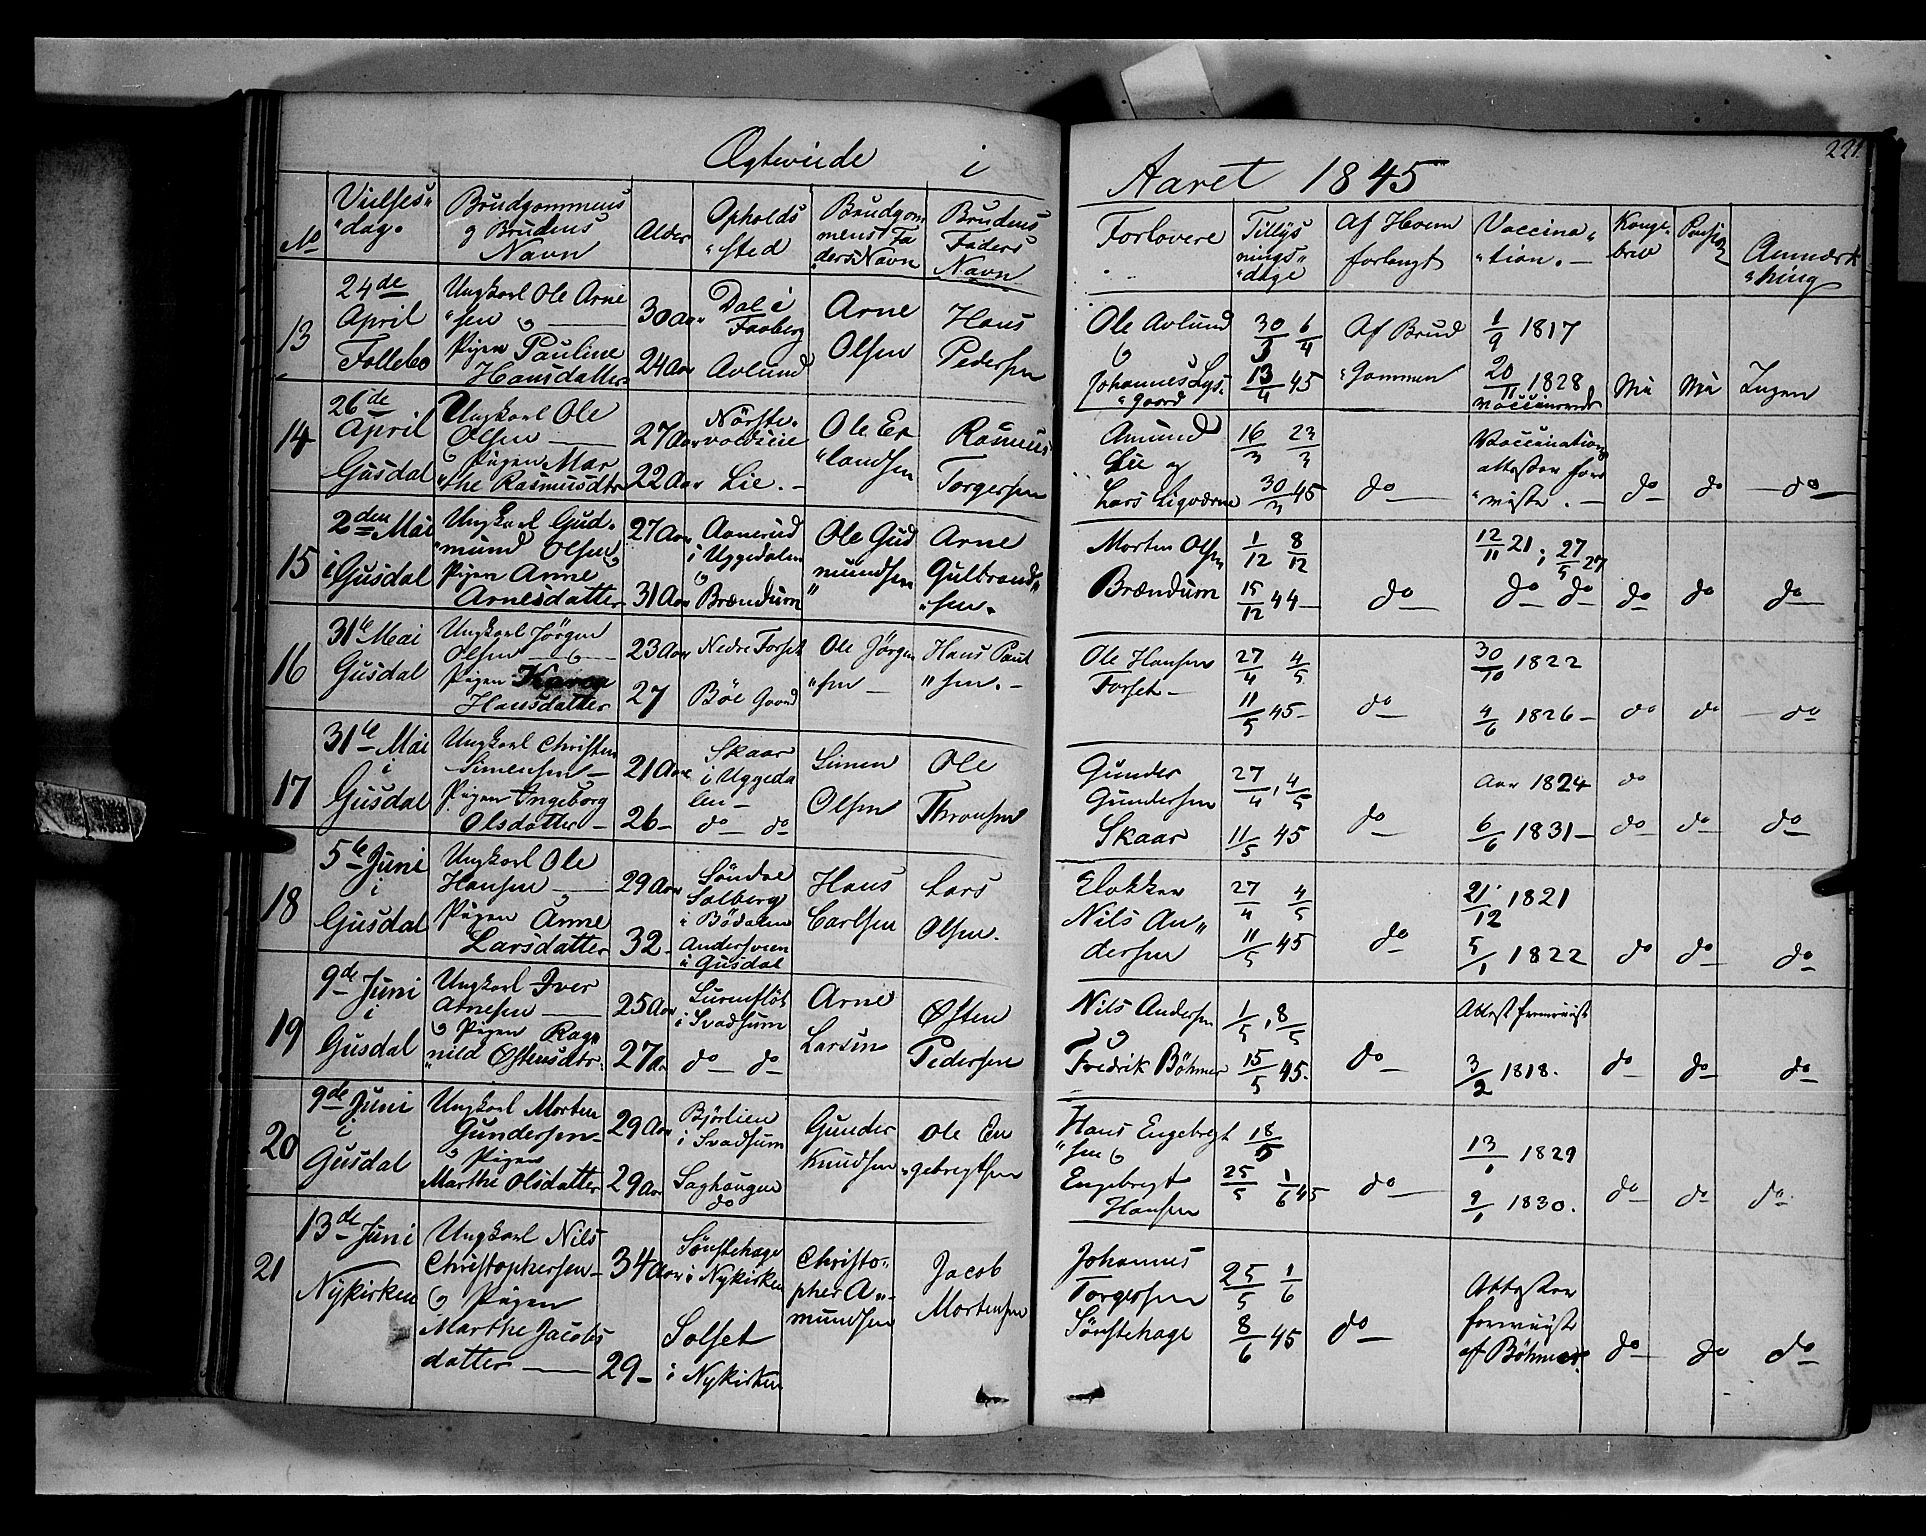 Ægteviede i Aaret 1845
221.
No
Vielses-
"dag.
Brudgommens
og Brudens
Navn
Alder
Opholds
"sted
Brudgom
mens Fa
"ders Navn
Brudens
Faders
Navn
Forlovere
Tillys
nings"
"dage
Af Hvem
forlangt
Vaccina"
"tion. —
Konge-
brev
Anmærk
"ning
13
24de
April
Follebo
Ungkarl Ole Arne
"sen og —
Pigen Pauline
Hansdatter
30 Aar
24 Aar
Dal i
Faaberg
Avlund
Arne
Olsen
Hans
Pedersen
Ole Avlund
og
Johannes Lys-
"gaard
30/3 6/4
13/4 45
Af Brud
"gommen
1/9 1817
20/11 1828
vaccinerede
Nei
Nei
Ingen
14
26de
April
Gusdal
Ungkarl Ole
Olsen —
og Pigen Mar
"the Rasmusdtr
27 Aar
22 Aar
Lie. —
Ole Er
"landsen
Rasmus
Torgersen
Amund
Lie og
Lars
16/3 23/3
30/3 45
do
Vaccination
attester fore
"viste. —
do
do
do
15
2den Mai
i Gusdal
Ungkarl Gud-
"mund Olsen og
Pigen Anne
Arnesdatter
27 Aar
31 Aar
i Uggedalen
og
Brændum
Ole Gud
mundsen
"
Arne
Gulbrand"
"sen.
Morten Olsen
Brændum
1/12 8/12
15/12 44
do
12/11 21; 27/5 27
do do
do
do
do
16
31te Mai
Gusdal
Ungkarl Jörgen
Olsen — og —
Pigen Karen
Hansdatter
23 Aar
27
Nedre Forset
Böe Gaard
Ole Jörgen
"sen —
Hans Paul
"sen. —
Ole Hansen
Forset —
27/4 4/5
11/5 45 —
do
30/10 1822
4/6 1826 —
do
do
do
17
31te Mai
i
Gusdal
Ungkarl Christen
Simensen —
Pigen Ingeborg
Olsdatter —
21 Aar
26 —
Skaar
i Uggeda
len —
do do
Simen
Olsen
Ole
Thronsen
Gunder
Gundersen
Skaar
27/4, 4/5
11/5 45
do
Aar 1824
6/6 1831 —
do
do
do
do
18
5te Juni
i
Gusdal
Ungkarl Ole
Hansen — og —
Pigen Anne
Larsdatter
29 Aar
32 —
Söndre
Solberg
i Bödalen
Andersveen
i Gusdal
Hans
Carlsen
Lars
Olsen.
Klokker
Nils An"
dersen
27/4 4/5
11/5 45
do
21/12 1821
5/1 1822
do
do
do
19
9de Juni
i
Gusdal
Ungkarl Iver
Arnesen —
og Pigen Rag
"nild Østensdtr.
25 Aar
27 a
i Svadsum
do do
Arne
Larsen
Østen
Pedersen
Nils Andersen
og
Fredrik Böhmer
1/5, 8/5
15/5 45.
do
Attest fremviist
3/2 1818.
do
do
do
20
9de Juni
i
Gusdal
Ungkarl Morten
Gundersen —
og Pigen
Marthe Olsdatter
29 Aar
29 Aar
Björlien
i Svadsum
Saghougen
do
Gunder
Knudsen
Ole En
"gebregtsen
Hans Engebregt
"sen og
Engebregt
Hansen
18/5
25/5 1/6 45
do
13/1 1829
9/1 1830.
do
do
do.
21
13de Juni
Nykirken
Ungkarl Nils
Christophersen —
og Pigen
Marthe Jacobs
datter —
34 Aar
29 —
Sönstehage
i Nykirken
Solset
i Nykirken
Christo-
pher A"-
mundsen
Jacob
Mortensen
Johannes
Torgersen
Sönstehage
25/5 1/6
8/6 45
do
Attester
fremviist
af Böhmer
do
do
do